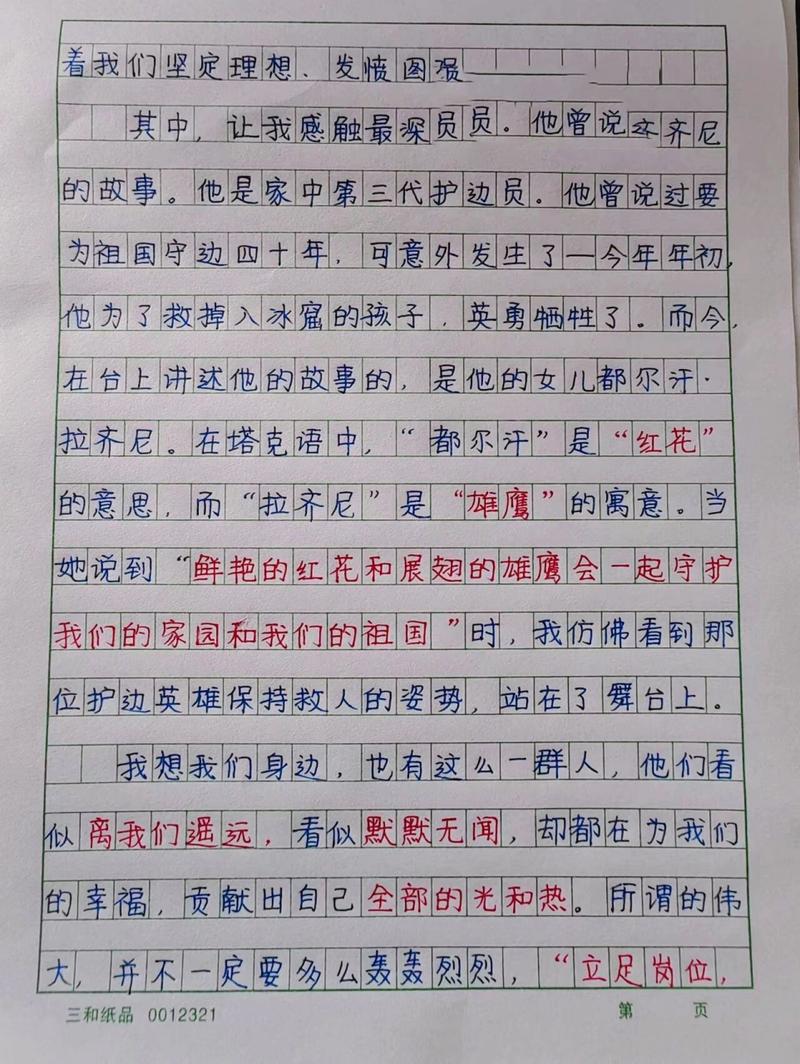 着我们坚定理想、发愤图强
其中，让我感触最深员员。他曾说 齐尼
的故事。他是家中第三代护边员。他曾说过要
为祖国守边四十年，可意外发生了一今年年初，
他为了救掉入冰窟的孩子，英勇牺牲了。而今，
在台上讲述他的故事的，是他的女儿都尔汗·
拉齐尼。在塔克语中，“都尔汗”是“红花”
的意思，而“拉齐尼”是“雄鹰”的寓意。当
她说到“鲜艳的红花和展翅的雄鹰会一起守护
我们的家园和我们的祖国”时，我仿佛看到那
位护边英雄保持救人的姿势，站在了舞台上。
我想我们身边，也有这么一群人，他们看
似离我们遥远，看似默默无闻，却都在为我们
的幸福，贡献出自己全部的光和热。所谓的伟
大，并不一定要多么轰轰烈烈，“立足岗位，
三和纸品 0012321 第 页